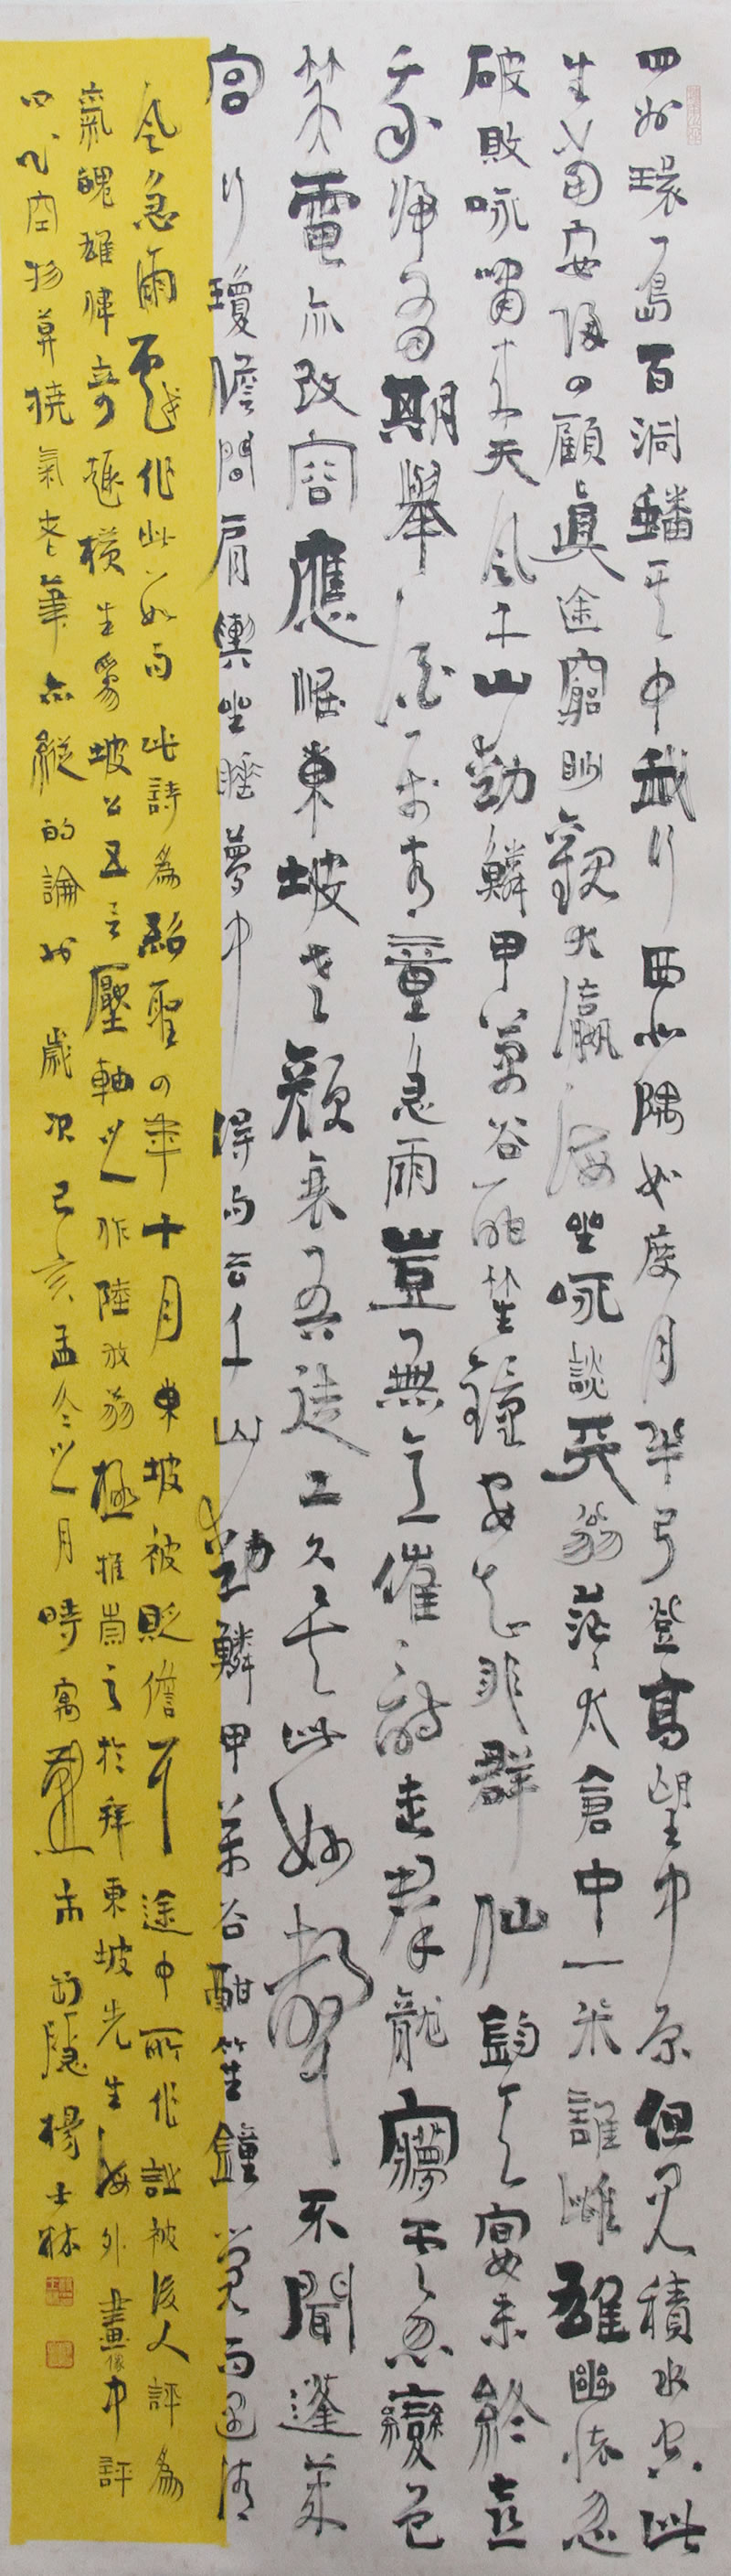 四州環一島百洞蟠其中我行西北隅如度月半弓登高望中原但見積水空此
生當安歸四顧眞途窮眇觀大瀛海坐咏談天翁茫茫太倉中一米誰雌雄幽懷忽
破敗咏嘯來天風千山動鱗甲萬谷酣笙鐘安知非群仙鈞天宴未終喜
我歸有期舉酒屬青童急雨豈無意催詩走群龍夢雲忽變色
笑電亦改容應怪東坡老顏衰語徒工久矣此妙聲不聞蓬萊
宮 行瓊儋間肩輿坐睡夢中得句云千山動鱗甲萬谷酣笙鐘覺而遇清
風急雨戲作此數句 此詩為紹聖四年十月東坡被貶儋耳途中所作被後人評為
氣魄雄偉奇趣橫生為坡公五言壓軸之作陸放翁極推崇之於拜東坡先生海外畫像中評
以心空物莫撓氣老筆亦縱的論也 歲次己亥孟冬之月時寓燕市缶隱楊士林